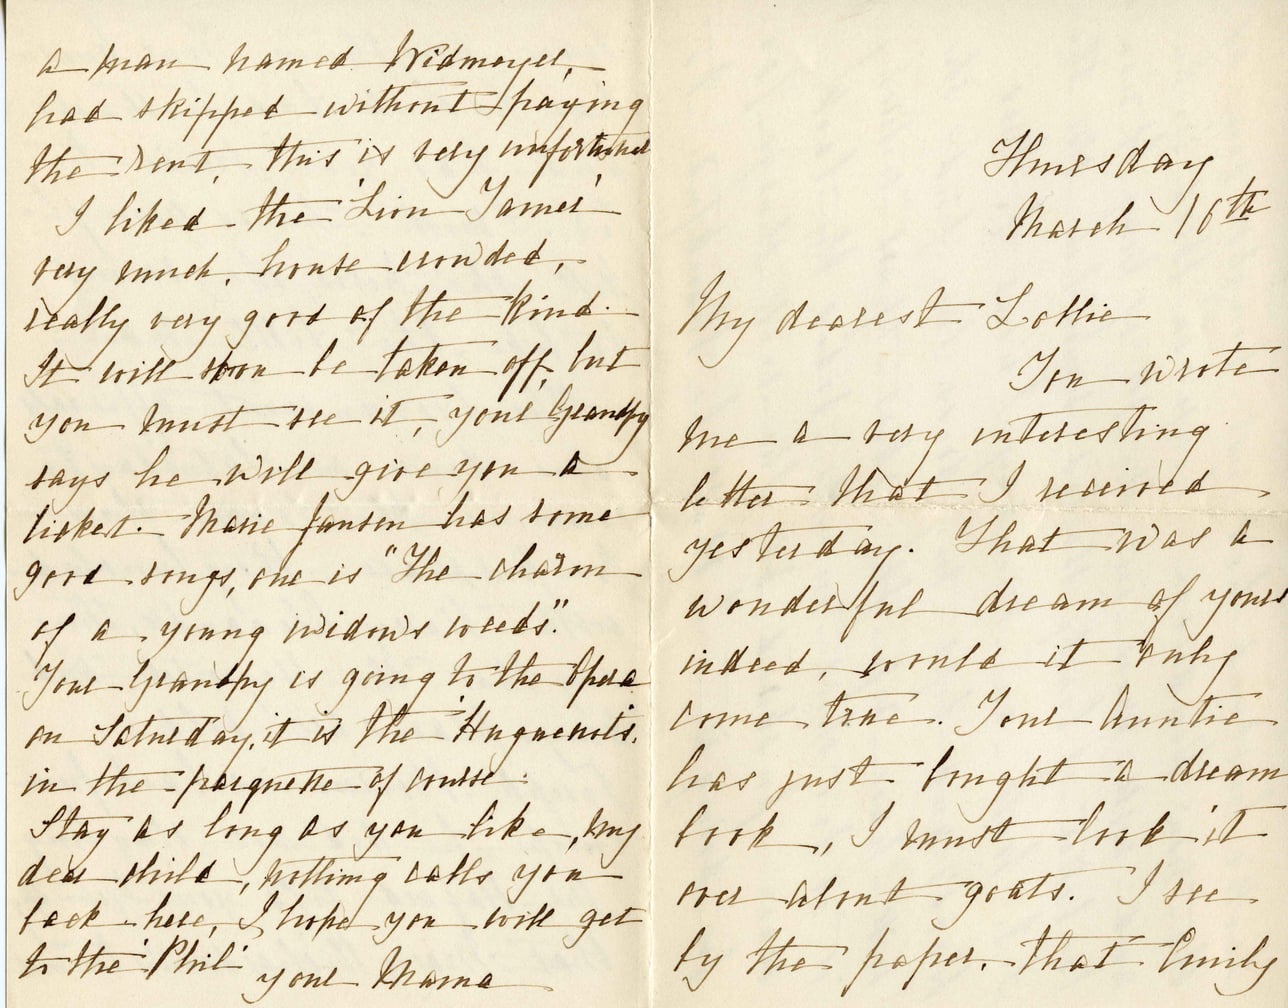 Thursday
March 16th
My dearest Lottie
You wrote
me a very interesting
letter that I received
yesterday. That was a
wonderful dream of yours
indeed, would it only
come true. Your Auntie
has just bought a dream
book, I must look it
over about goats. I see
by the paper, that Emily
a man named Widmayer,
had skipped without paying
the rent, this is very unfortunate
I liked the 'Lion Tamer'
very much, house crowded,
really very good of the kind.
It will soon be taken off, but
you must see it, your Grandpy
says he will give you a
ticket. Marie Jansen has some
good songs, one is "The charm
of a young widow's weeds".
Your Grandpy is going to the Opera
on Saturday, it is the 'Huguenots'.
in the parquette of course.
Stay as long as you like, my
dear child, nothing calls you
back here, I hope you will get
to the 'Phil' your Mama